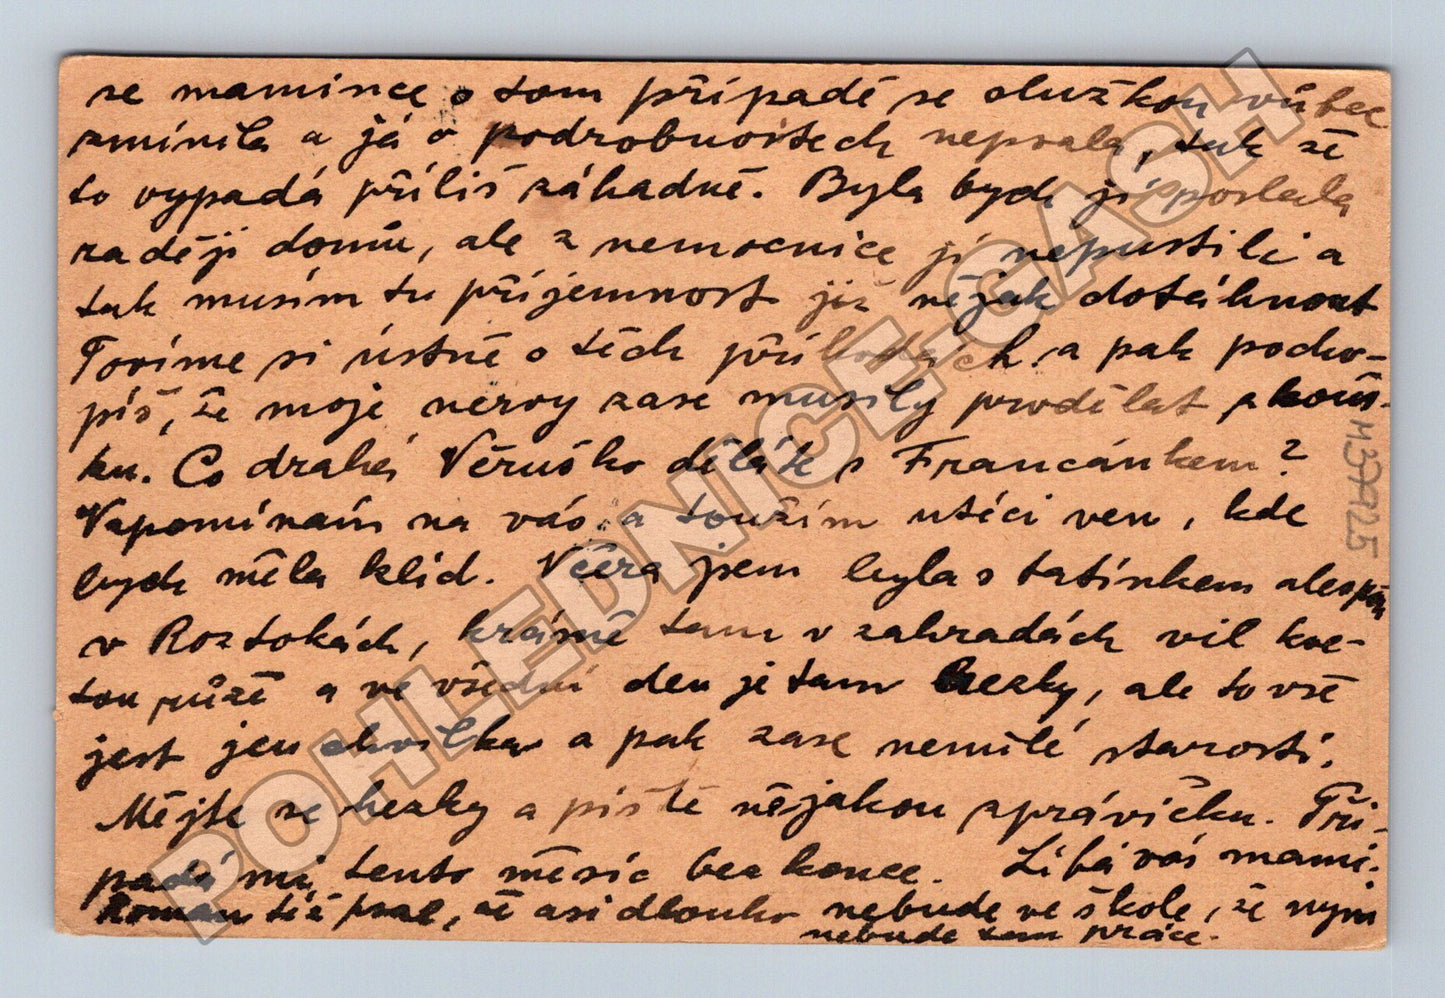 se mamince o tom případě se služkou vůbec
zmínila a já o podrobnostech nepsala, tak že
to vypadá příliš záhadně. Byla bych jí poslala
raději domů, ale z nemocnice jí nepustili a
tak musím tu příjemnost již nějak dotáhnout
Povíme si ústně o těch příhodách a pak pocho-
píš, že moje nervy zase musily prodělat zkouš-
ku. Co drahá Věruško děláte s Francánkem?
Vzpomínám na vás a toužím utéci ven, kde
bych měla klid. Včera jsem byla s tatínkem alespoň
v Roztokách, krásně tam v zahradách vil kve-
tou růže a ve všední den je tam hezky, ale to vše
jest jen chvilka a pak zase nemilé starosti.
Mějte se hezky a pište nějakou zprávičku. Při-
padá mi tento měsíc bez konce. Líbá vás mami.
Roman též psal, že asi dlouho nebude ve škole, že nyní
nebude tam práce.
M37925
POHLEDNICE-GASH